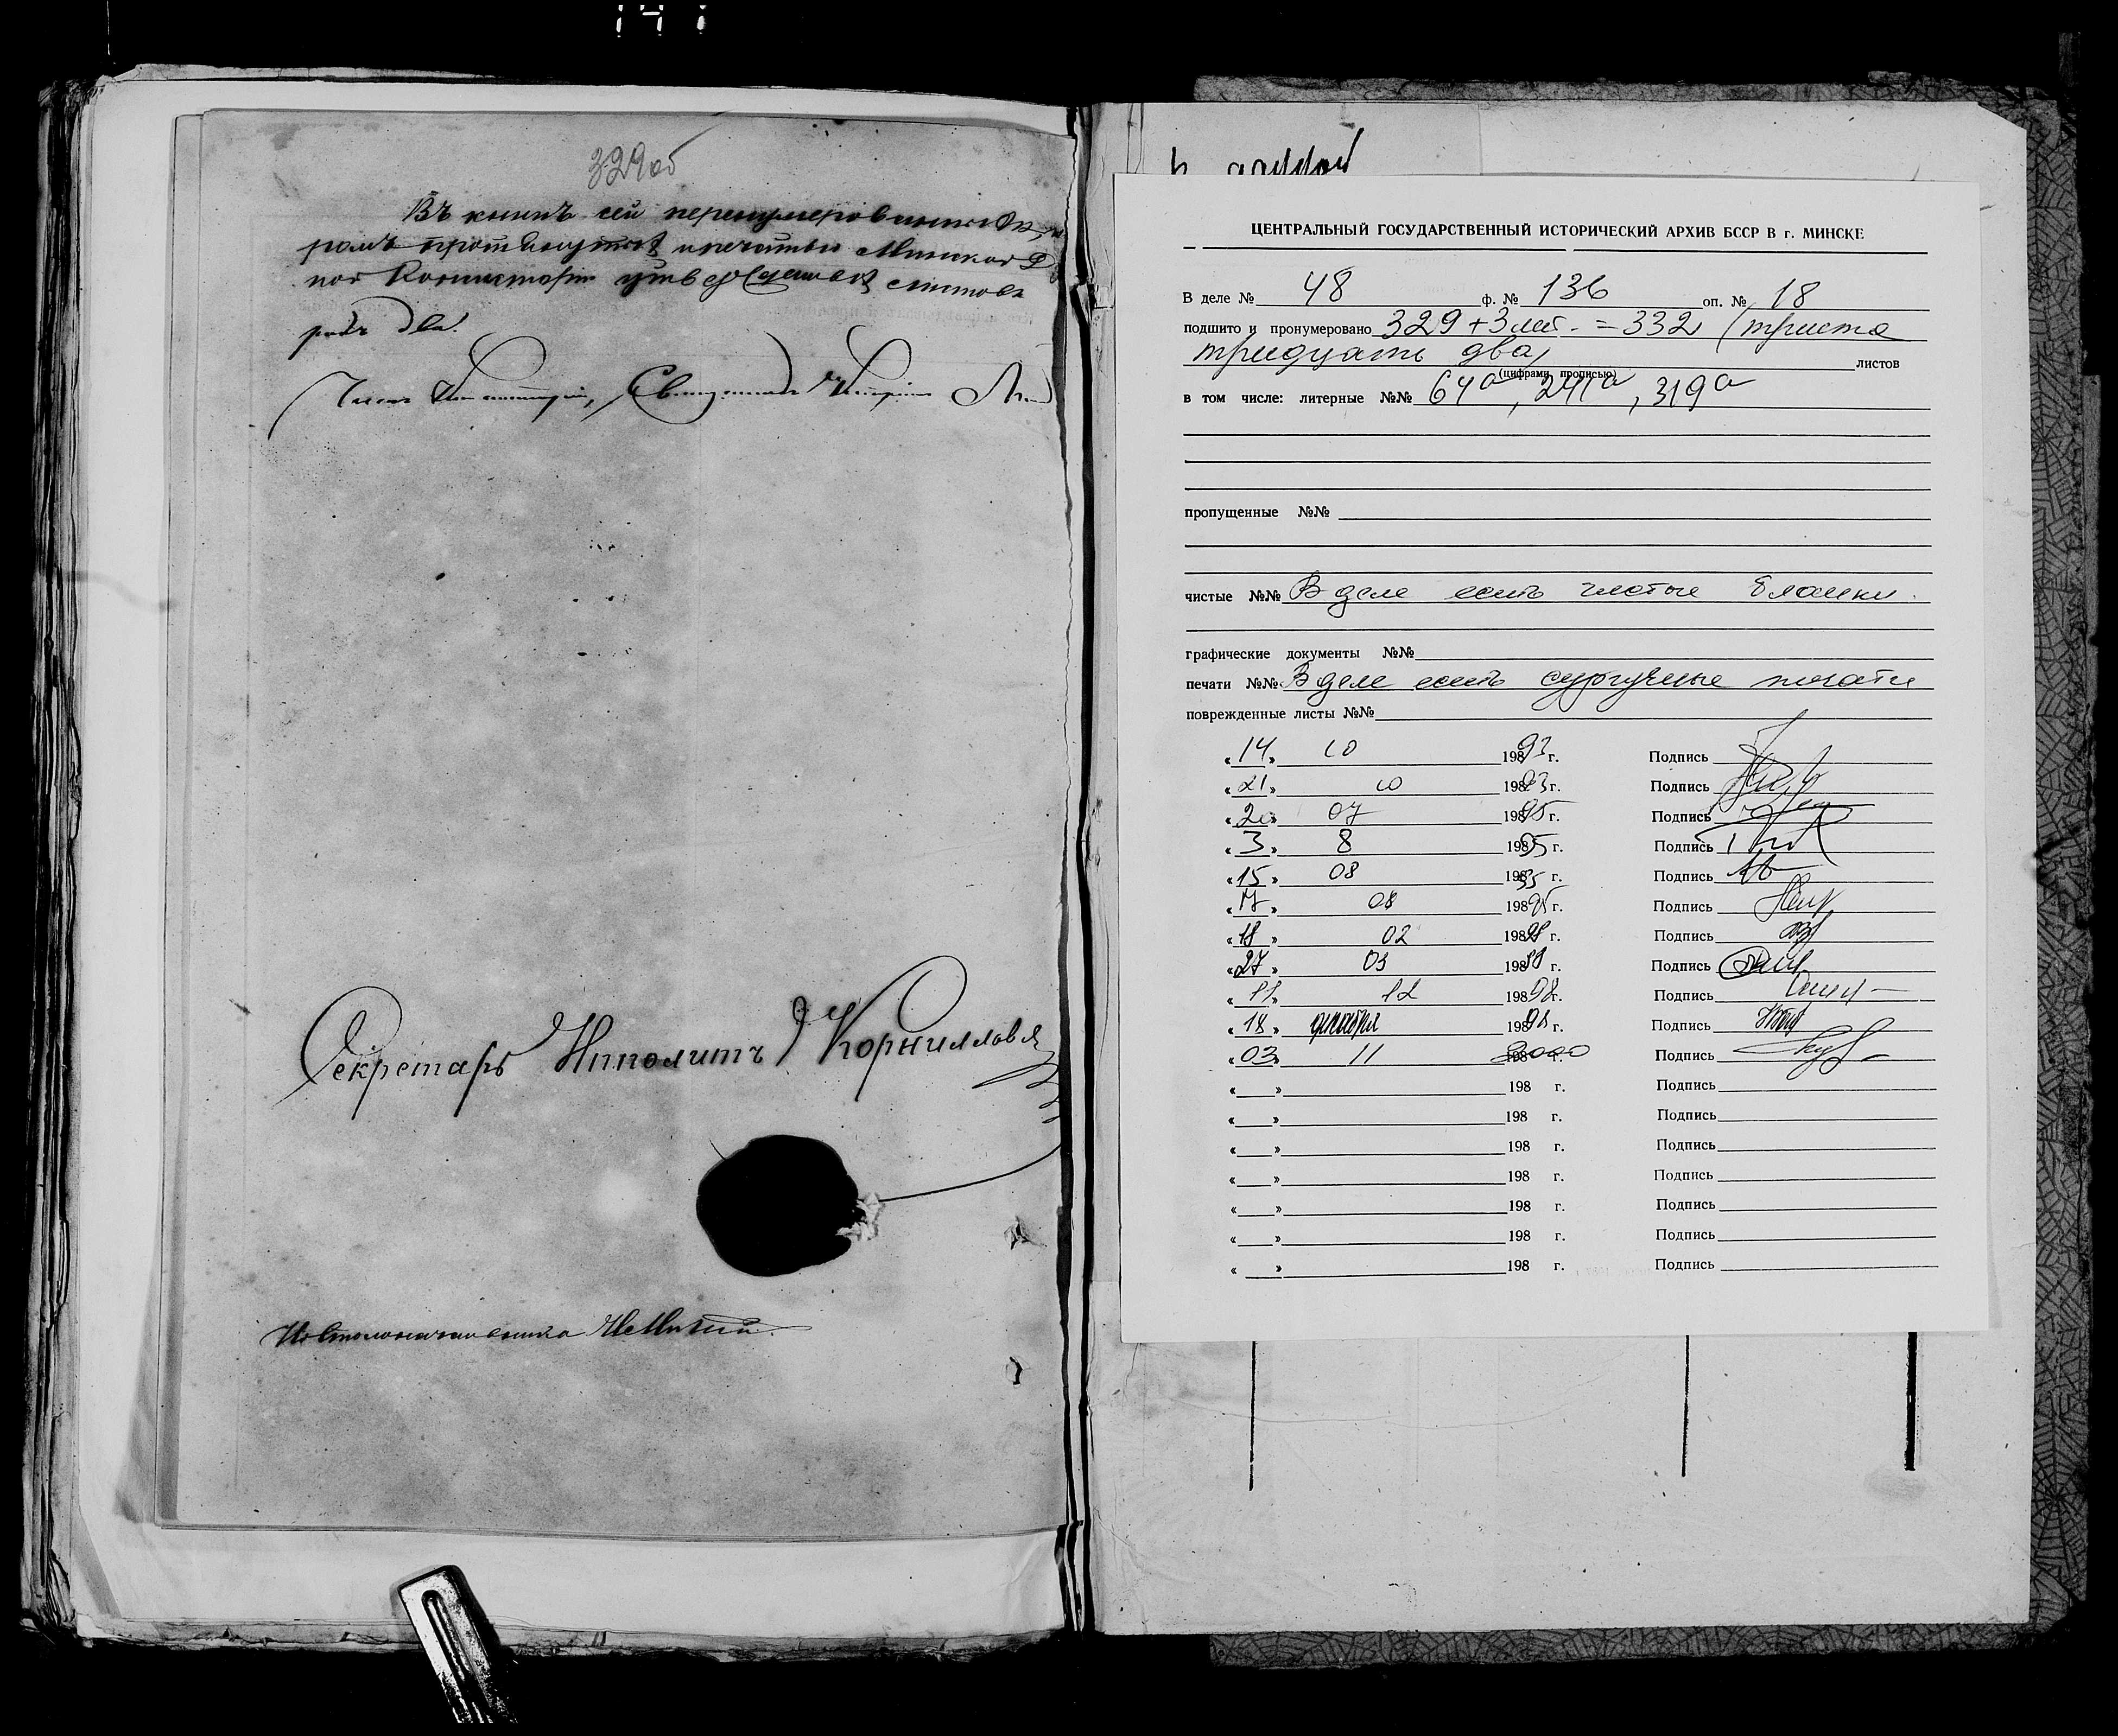 329об
Въ книгѣ сей перенумерованныхъ
прошнуров. и печатью Минской Д
ной Консисторіи утвержденныхъ листовъ
два.
Членъ Консисторіи, Священникъ
Секретарь Ипполитъ Корниловъ
И. д. Столоначальника
ЦЕНТРАЛЬНЫЙ ГОСУДАРСТВЕННЫЙ ИСТОРИЧЕСКИЙ АРХИВ БССР В г. МИНСКЕ
В деле № 48 ф. № 136 оп. № 18
подшито и пронумеровано 329 + 3 лит. = 332 (триста
тридцать два) листов
(цифрами, прописью)
в том числе: литерные №№ 64а, 241а, 319а
пропущенные №№
чистые №№ В деле есть чистые бланки.
графические документы №№
печати №№ В деле есть сургучные печати
поврежденные листы №№
«14» 10 19893 г. Подпись
«21» 10 19893 г. Подпись
«20» 07 19895 г. Подпись
«3» 8 19895 г. Подпись
«15» 08 19895 г. Подпись
«17» 08 19895 г. Подпись
«18» 02 19898 г. Подпись
«27» 03 198 г. Подпись
«11» 12 19898 г. Подпись
«18» декабря 19898 г. Подпись
«03» 11 2000 Подпись
« » 198 г. Подпись
« » 198 г. Подпись
« » 198 г. Подпись
« » 198 г. Подпись
« » 198 г. Подпись
« » 198 г. Подпись
« » 198 г. Подпись